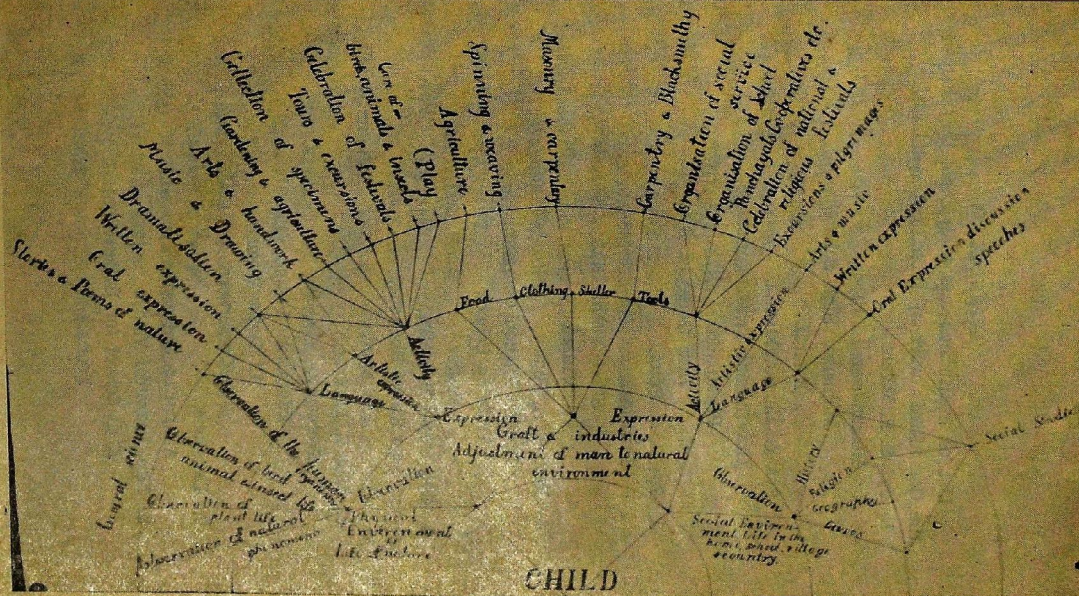 Stories & Poems of nature
Oral expression
Written expression
Dramatisation
Music &
Drawing
Arts & handwork
Gardening & agriculture
Collection of specimens
Tours & excursions
Celebration of festivals
Care of
birds, animals & insects
(Play
Agriculture
Spinning & weaving
Masonry & carpentry
Carpentry & Blacksmithy
Organisation of social
service
Organisation of School
Panchayats Co-operatives etc.
Celebration of national &
religious festivals
Excursions & pilgrimages
Arts & music
Written expression
Oral Expression discussion
speeches
Food
Clothing
Shelter
Tools
Activity
Artistic
expression
Language
Expression
Activity
Artistic expression
Language
Expression
Craft & industries
Adjustment of man to natural
environment
General science
Observation of the
Observation of bird
animal & insect life
Observation of
plant life
Observation of natural
phenomena
Observation
Physical
Environment
Life of nature
Observation
History
Religion
Geography
Civics
Social Environ-
ment Life in the
home, school, village
& country.
Social Studies
CHILD